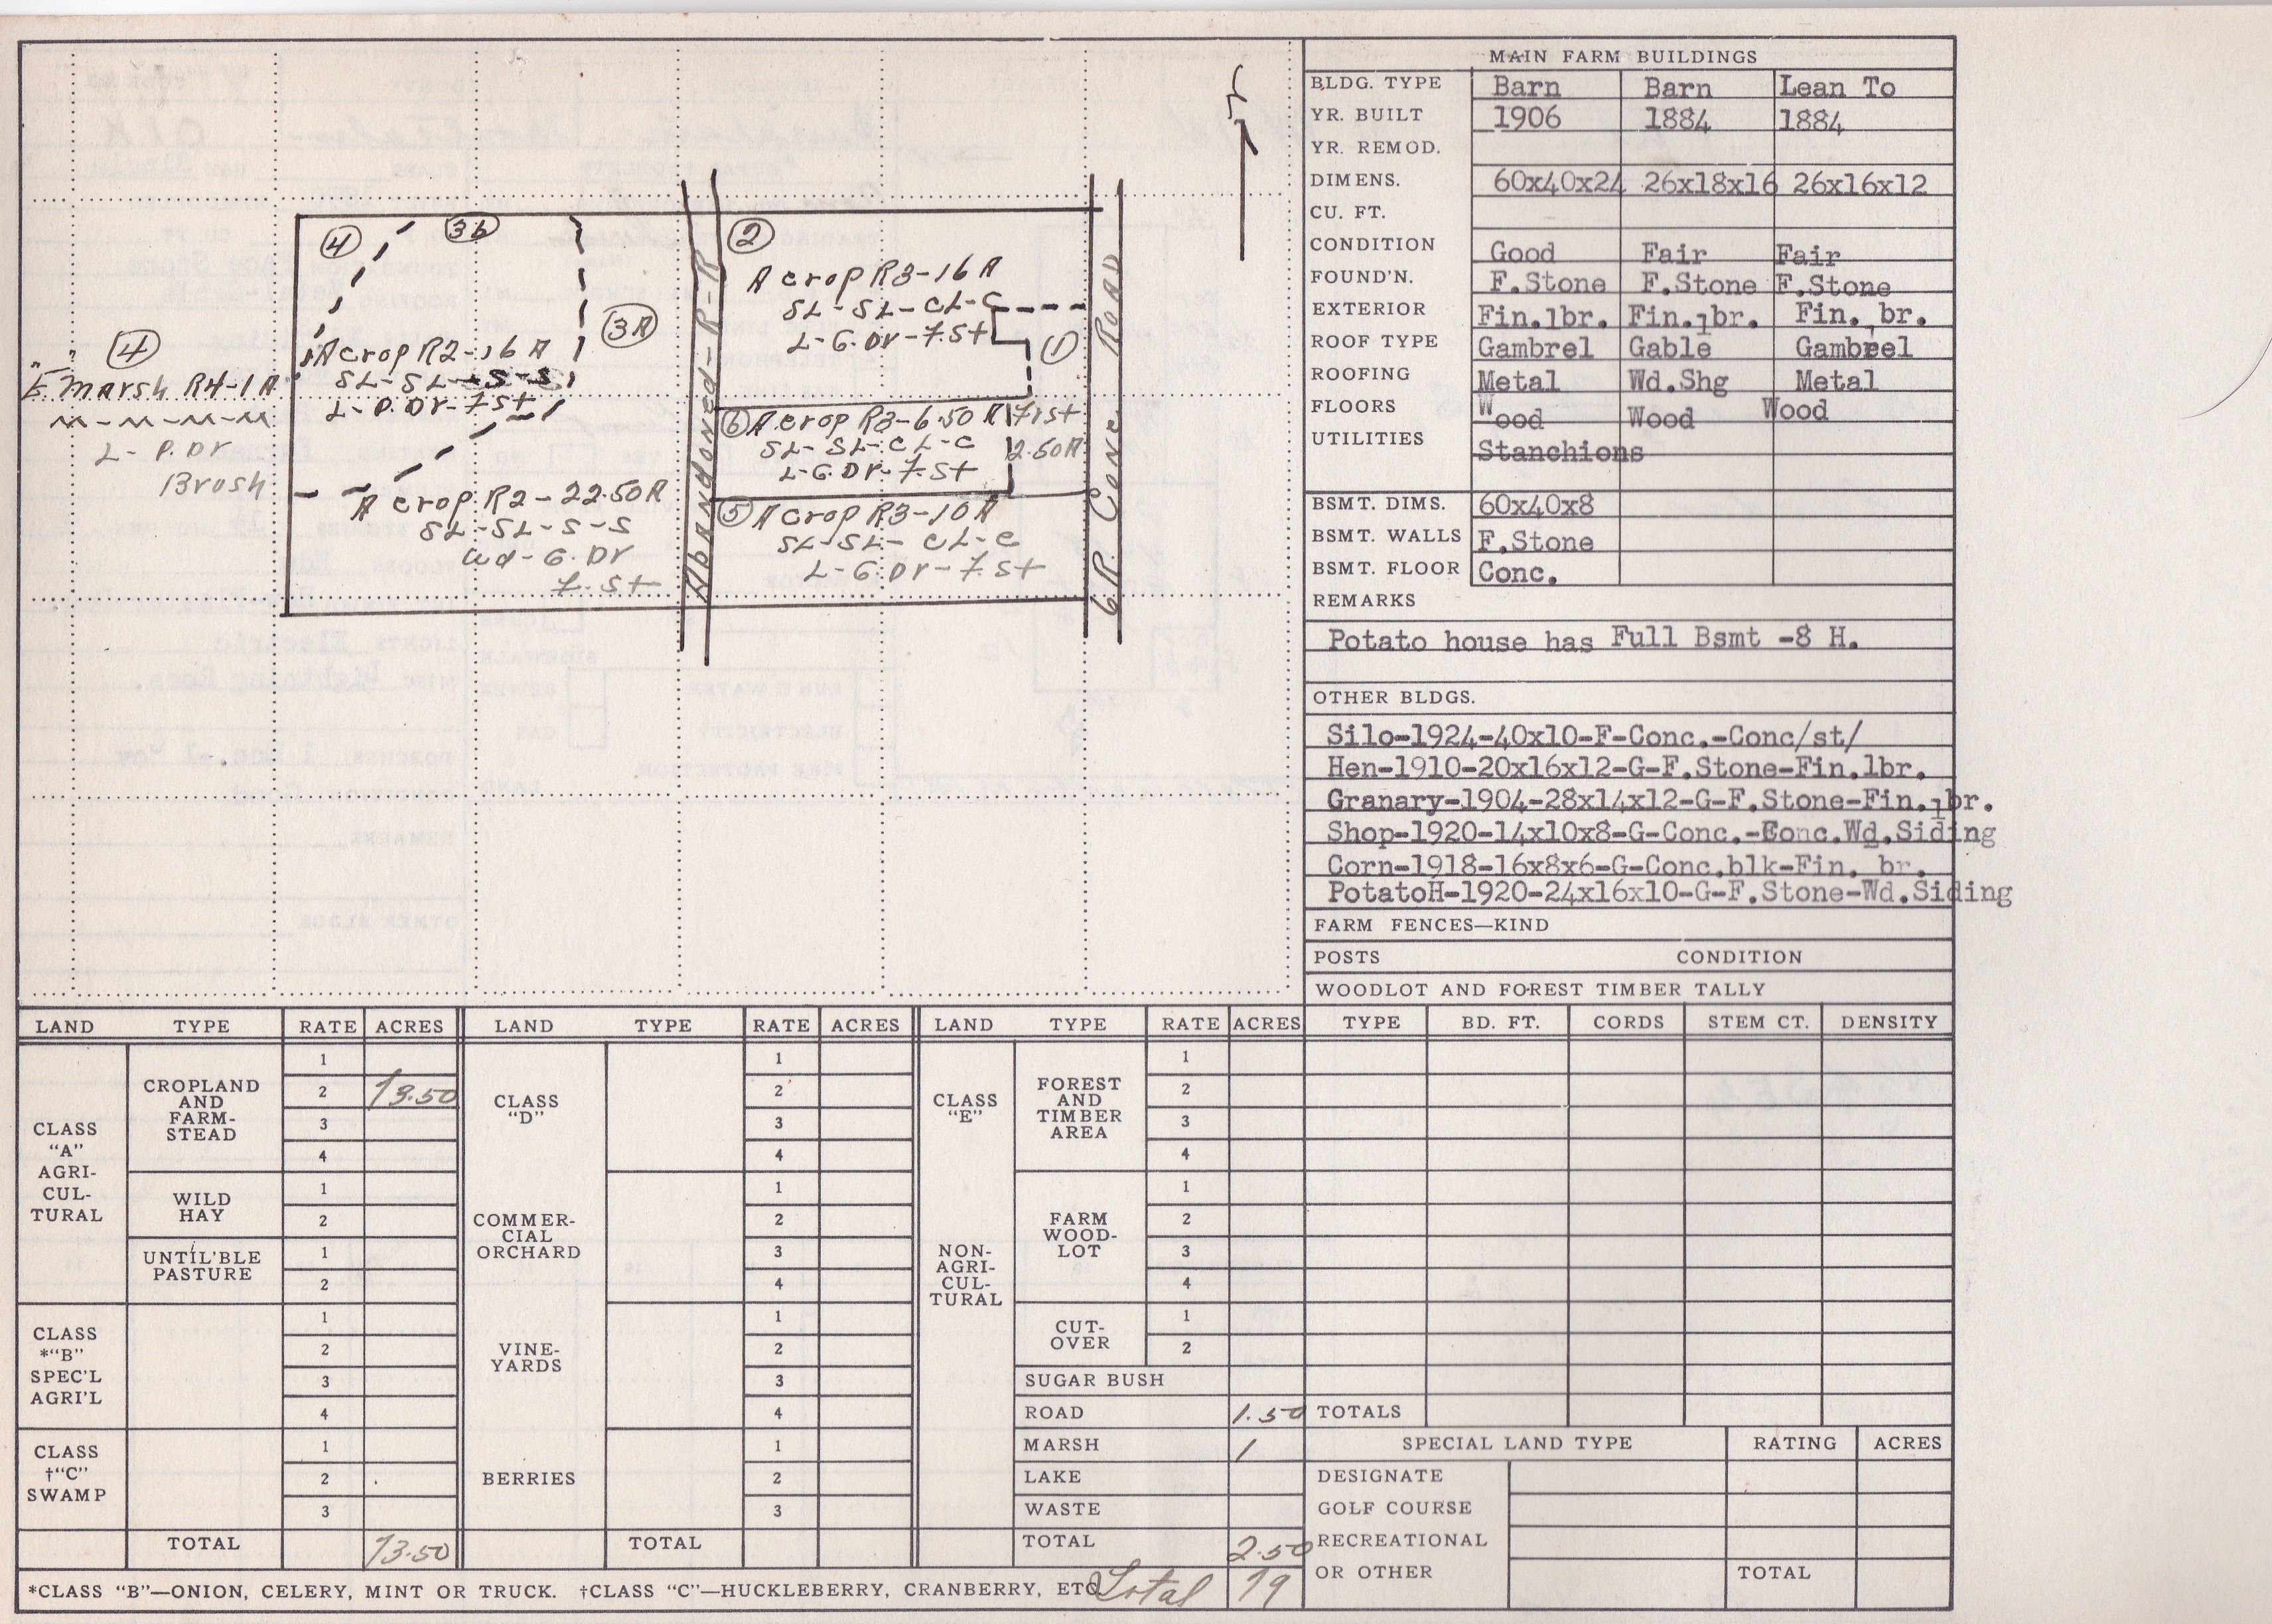 ④
③b
③A
A crop R2-16 A
SL-SL-S-S
L-P.Dr-7.St
④
E. Marsh R4-1A
M-M-M-M
L-P.Dr
Brush
A crop R2-22.50A
SL-SL-S-S
Wd-G.Dr
7.St
Abandoned-R-R
②
A crop R3-16 A
SL-SL-CL-C
L-G.Dr-7.St
①
⑥ A crop R3-6.50 A
SL-SL-CL-C
L-G.Dr-7.St
2.50A
⑤ A crop R3-10 A
SL-SL-CL-C
L-G.Dr-7.St
GR Conc Road
MAIN FARM BUILDINGS
BLDG. TYPE Barn Barn Lean To
YR. BUILT 1906 1884 1884
YR. REMOD.
DIMENS. 60x40x24 26x18x16 26x16x12
CU. FT.
CONDITION Good Fair Fair
FOUND'N. F.Stone F.Stone F.Stone
EXTERIOR Fin.lbr. Fin.lbr. Fin. br.
ROOF TYPE Gambrel Gable Gambrel
ROOFING Metal Wd.Shg Metal
FLOORS Wood Wood Wood
UTILITIES Stanchions
BSMT. DIMS. 60x40x8
BSMT. WALLS F.Stone
BSMT. FLOOR Conc.
REMARKS
Potato house has Full Bsmt -8 H.
OTHER BLDGS.
Silo-1924-40x10-F-Conc.-Conc/st/
Hen-1910-20x16x12-G-F.Stone-Fin.lbr.
Granary-1904-28x14x12-G-F.Stone-Fin.lbr.
Shop-1920-14x10x8-G-Conc.-Eonc.Wd.Siding
Corn-1918-16x8x6-G-Conc.blk-Fin. br.
PotatoH-1920-24x16x10-G-F.Stone-Wd.Siding
FARM FENCES—KIND
POSTS CONDITION
WOODLOT AND FOREST TIMBER TALLY
TYPE BD. FT. CORDS STEM CT. DENSITY
TOTALS
SPECIAL LAND TYPE RATING ACRES
DESIGNATE
GOLF COURSE
RECREATIONAL
OR OTHER TOTAL
LAND TYPE RATE ACRES
CLASS
"A"
AGRI-
CUL-
TURAL
CROPLAND
AND
FARM-
STEAD
1
2 73.50
3
4
WILD
HAY
1
2
UNTIL'BLE
PASTURE
1
2
CLASS
*"B"
SPEC'L
AGRI'L
1
2
3
4
CLASS
†"C"
SWAMP
1
2
3
TOTAL 73.50
LAND TYPE RATE ACRES
CLASS
"D"
1
2
3
4
COMMER-
CIAL
ORCHARD
1
2
3
4
VINE-
YARDS
1
2
3
4
BERRIES
1
2
3
TOTAL
LAND TYPE RATE ACRES
CLASS
"E"
NON-
AGRI-
CUL-
TURAL
FOREST
AND
TIMBER
AREA
1
2
3
4
FARM
WOOD-
LOT
1
2
3
4
CUT-
OVER
1
2
SUGAR BUSH
ROAD 1.50
MARSH 1
LAKE
WASTE
TOTAL 2.50
*CLASS "B"—ONION, CELERY, MINT OR TRUCK. †CLASS "C"—HUCKLEBERRY, CRANBERRY, ETC.
Total 79